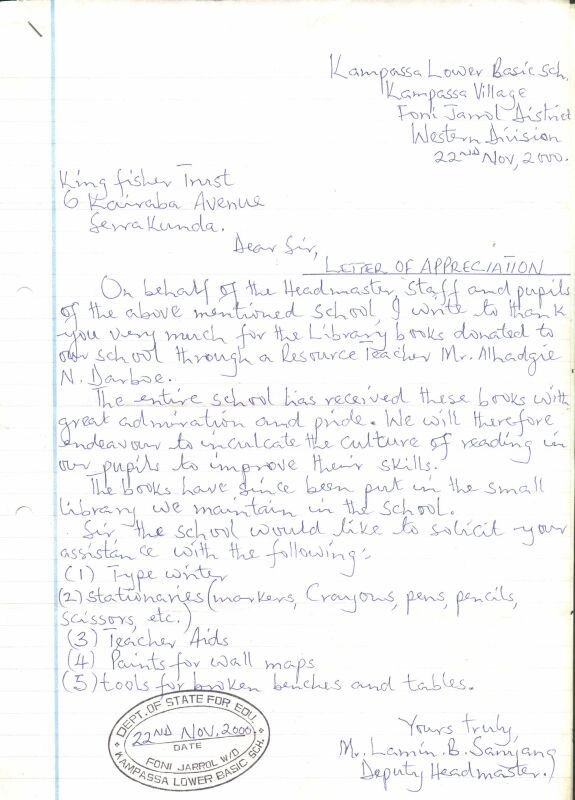 Kampassa Lower Basic Sch.
Kampassa Village
Foni Jarrol District
Western Division
22ND Nov, 2000.
King fisher Trust
6 Kairaba Avenue
SerraKunda.
Dear Sir,
LETTER OF APPRECIATION
On behalf of the Headmaster, staff and pupils
of the above mentioned school, I write to thank
you very much for the Library books donated to
our school through a Resource Teacher Mr. Alhadgie
N. Darboe.
The entire school has received these books with
great admiration and pride. We will therefore
endeavour to inculcate the culture of reading in
our pupils to improve their skills.
The books have since been put in the small
library we maintain in the school.
Sir, the school would like to solicit your
assistance with the following:-
(1) Type writer
(2) stationaries (markers, Crayons, pens, pencils,
scissors, etc.)
(3) Teacher Aids
(4) Paints for wall maps
(5) tools for broken benches and tables.
DEPT. OF STATE FOR EDU.
22ND NOV. 2000.
DATE
FONI JARROL W/D
KAMPASSA LOWER BASIC SCH.
Yours truly,
Mr. Lamin. B. Sanyang
Deputy Headmaster.)